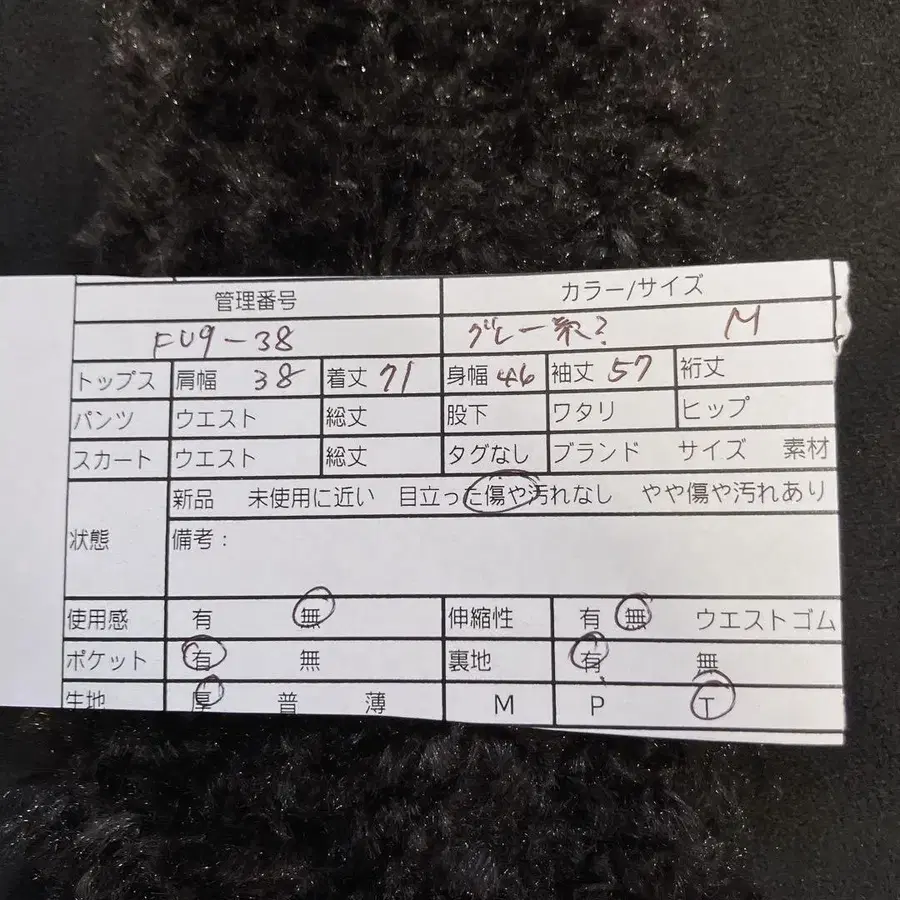 管理番号 カラー/サイズ
FU9-38 グレー系? M
トップス 肩幅 38 着丈 71 身幅 46 袖丈 57 裄丈
パンツ ウエスト 総丈 股下 ワタリ ヒップ
スカート ウエスト 総丈 タグなし ブランド サイズ 素材
新品 未使用に近い 目立った傷や汚れなし やや傷や汚れあり
状態 備考:
使用感 有 無 伸縮性 有 無 ウエストゴム
ポケット 有 無 裏地 有 無
生地 厚 普 薄 M P T